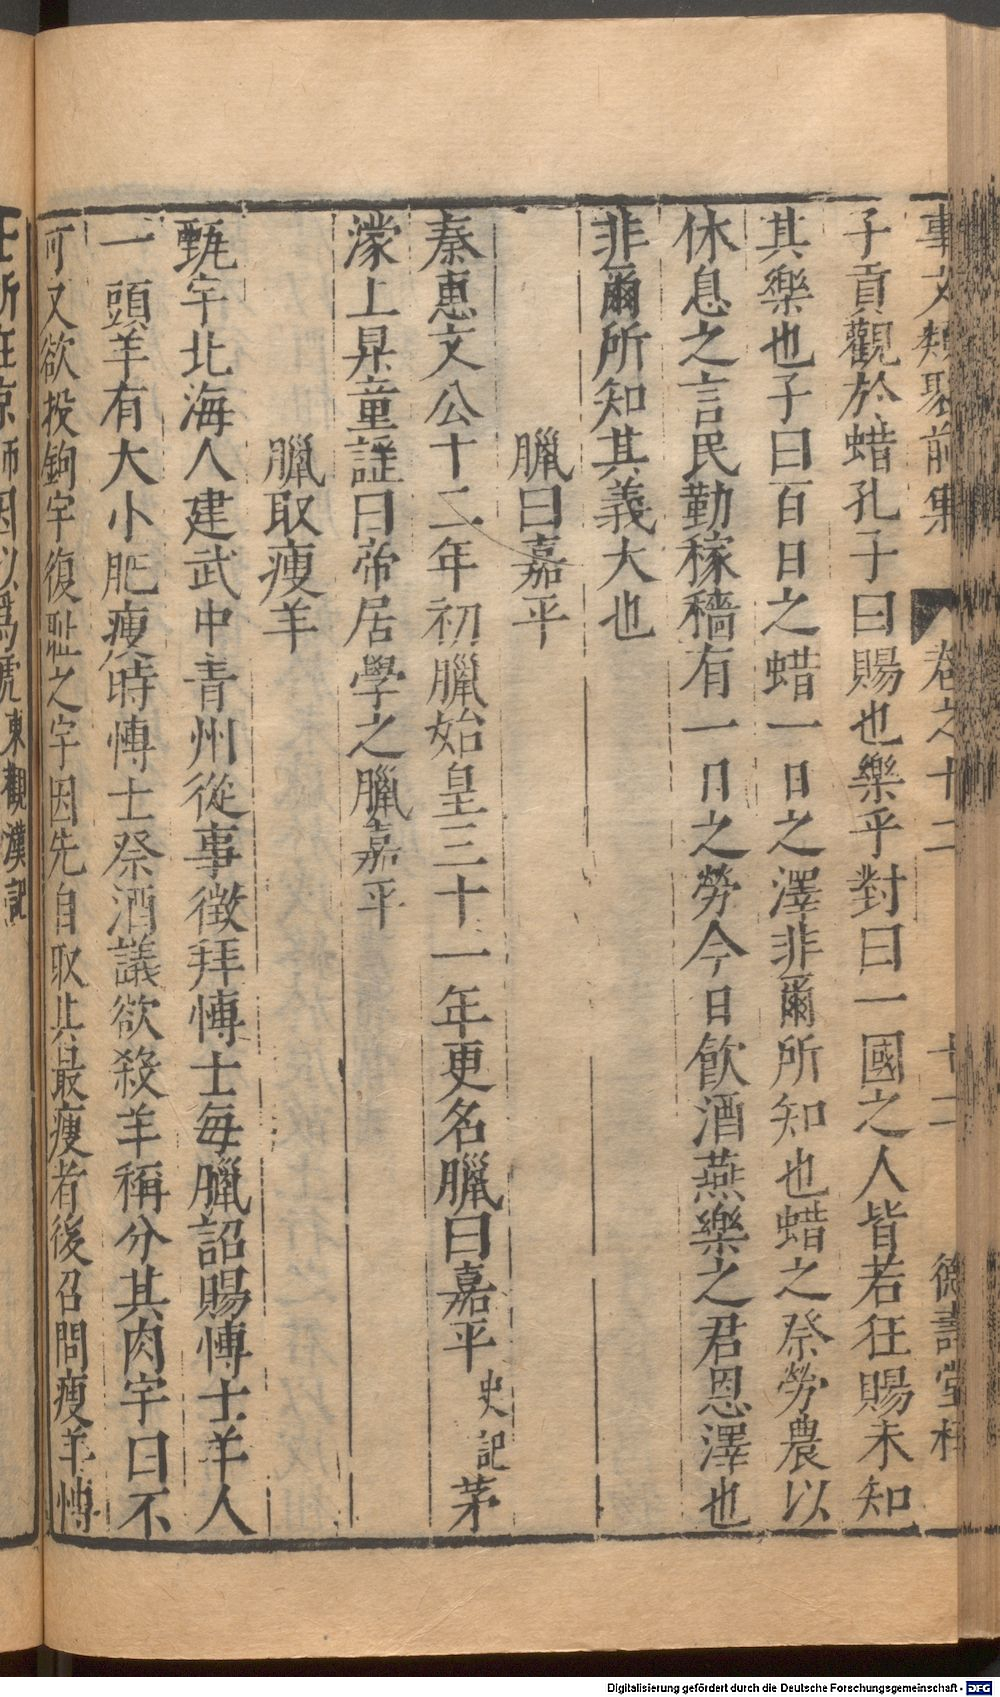 事文類聚前集 卷之十二 十二 德壽堂梓
子貢觀於蜡孔子曰賜也樂乎對曰一國之人皆若狂賜未知
其樂也子曰百日之蜡一日之澤非爾所知也蜡之祭勞農以
休息之言民勤稼穡有一日之勞今日飲酒燕樂之君恩澤也
非爾所知其義大也
臘曰嘉平
秦惠文公十二年初臘始皇三十一年更名臘曰嘉平史記茅
濛上昇童謡曰帝居學之臘嘉平
臘取瘦羊
甄宇北海人建武中青州從事徵拜愽士每臘詔賜愽士羊人
一頭羊有大小肥瘦時愽士祭酒議欲殺羊稱分其肉宇曰不
可又欲投鉤宇復耻之宇因先自取其最瘦者後召問瘦羊愽
士所在京師因以爲號東觀漢記
Digitalisierung gefördert durch die Deutsche Forschungsgemeinschaft - DFG